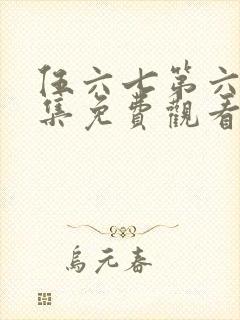 伍六七第六
集免費觀看
烏元春